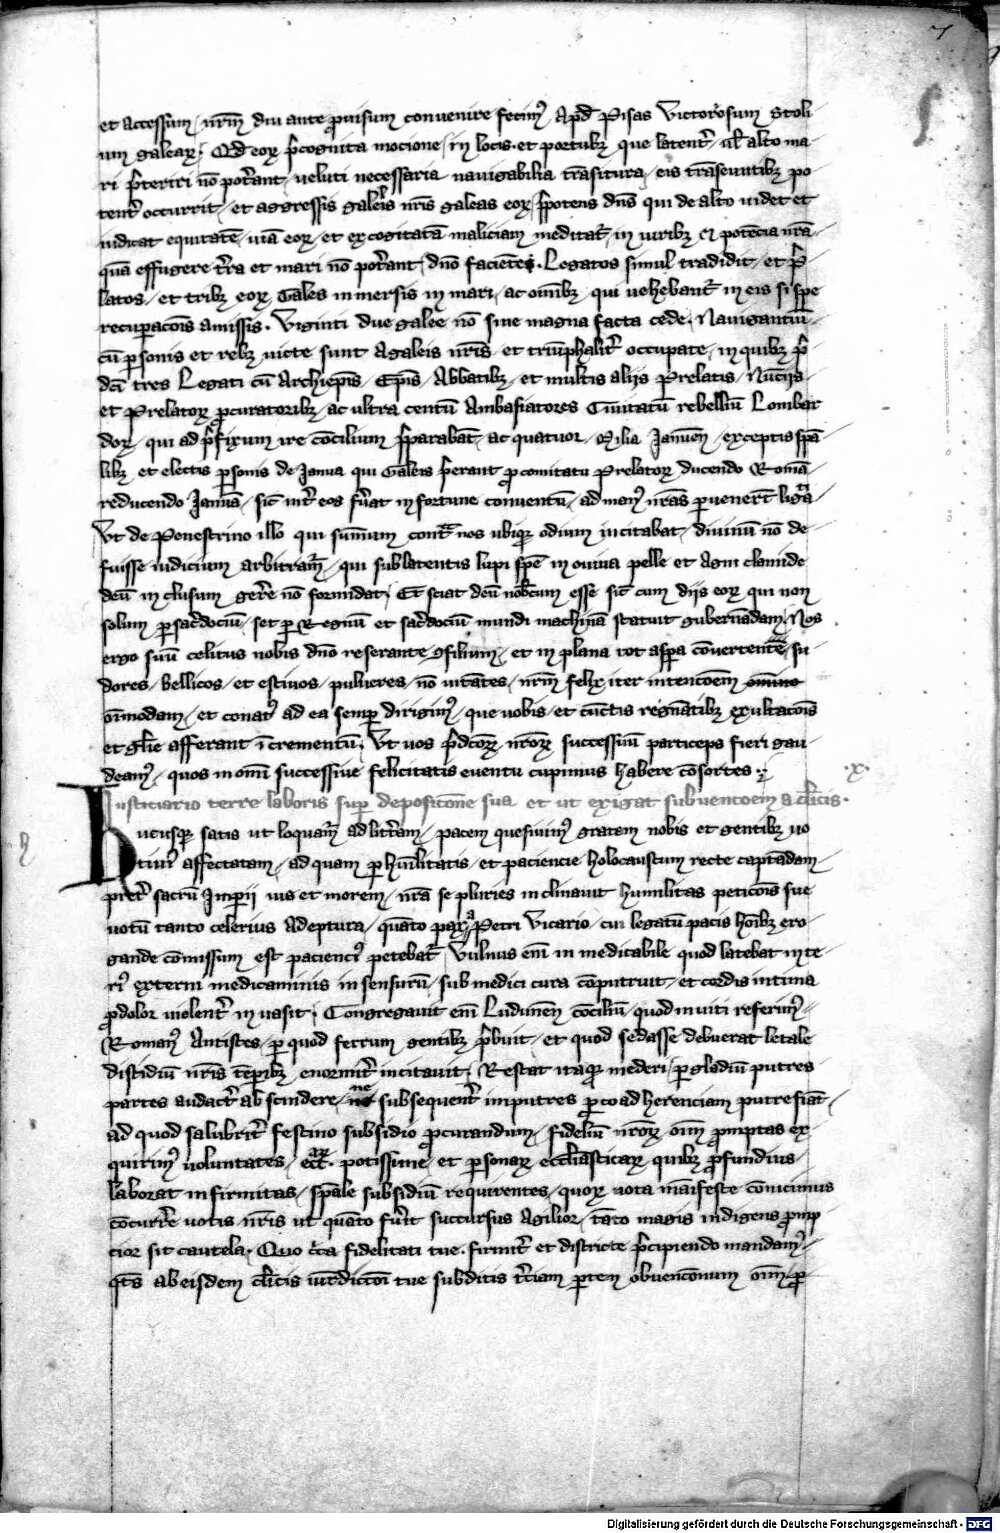 7
et accessum / nr̄m diu ante ꝓuisum conuenire fecimꝰ Apd̄ Pisas Victoriosum Stoli
um galeaꝝ. Qd̄ eoꝝ p̄cognita mocione / in locis et portubꝫ que latent̄ / ul̓ alto ma
ri p̄teriri nō pot̄ant / ueluti necessaria nauigabilia trāsitura / eis trāseuntibꝫ po
tent̄ occurrit / et aggressis galeis nr̄is galeas eoꝝ / p̄potens dn̄s qui de alto uidet et
iudicat equitatē / uiā eoꝝ / et excogitatā maliciam meditat̄ / in uiribꝫ et potēcia nr̄a
quā effugere t̄ra et mari nō pot̄ant / dn̄o faciente. Legatos simul tradidit / et p̄
latos / et tribꝫ eoꝝ Galeis inmersis in mari / ac om̄ibꝫ qui uehebant̄ in eis si spe
recupacōis amissis. Viginti due galee nō sine magna facta cede / Nauigantiū
cū ꝑsonis et rebꝫ uicte sunt Agaleis nr̄is / et triūphalit̄ occupate / in quibꝫ p̄
dc̄i tres Legati cū Archiepis̄ / Epis̄ / Abbatibꝫ / et multis aliis Prelatis / Nūciis
et Prelatoꝝ ꝓcuratoribꝫ / ac ultra centū Ambasiatores Ciuitatū rebelliū Lombar
doꝝ / qui ad p̄fixum ire cōcilium p̄parabāt / ac quatuor / Milia Januen̄ / exceptis spā
libꝫ et electis ꝑsonis de Janua qui Galeis p̄erant ꝓ comitatu Prelatoꝝ ducendo Romā
reducendo Januā / sic int̄ eos fūat infortune conuentū / ad manꝰ nr̄as ꝑuener̄t ligata
Vt de Penestrino illo qui sum̄um cont̄ nos ubiqꝫ odium incitabat / diuinū nō de
fuisse iudicium arbitramꝰ / qui sub latentis lupi spē in ouina pelle et Agni clamide
deū inclusum ger̄e nō formidat / Et sciat deū nobc̄um esse sic cum diis eoꝝ qui non
solum ꝑ sac̄dociū / set ꝑ Regnū et sac̄dociū mundi machinā statuit gubernādam / Nos
ergo suū celitus nobis dn̄o reserante ꝯsilium / et in plana tot aspa cōuertente / su
dores / bellicos / et estiuos / pulueres / nō uitātes / nr̄m felix iter intencōem omīno
om̄imodam / et conatꝰ ad ea semꝑ dirigimꝰ / que uobis / et cūctis regnātibꝫ exultacōis
et gl̄ie afferant īcrementū. Vt uos p̄dcōꝝ nr̄oꝝ successuū particeps fieri gau
deamꝰ / quos in om̄i successiue felicitatis euentu cupimus habere cōsortes.
Iusticiario terre laboris suꝑ deposicōne sua et ut exigat subuentōem a cl̄icis. .x.
Hucusqꝫ satis ut loquamꝰ ad litt̄am / pacem quesiuimꝰ gratam nobis et gentibꝫ uo
tiuꝰ affectatam / ad quam ꝑ hūilitatis / et paciencie holocaustum recte captādam
pret̄ sacrū Imꝑii ius et morem / nr̄a se pluries inclinauit humilitas peticōis sue
uotū tanto celerius Adeptura / quāto pax a Petri Vicario / cui legatū pacis hōibꝫ ero
gande cōmissum est pacienciꝰ petebat̄ / Vulnus eni inmedicabile quod latebat inte
riꝰ externi medicaminis insensurū / sub medici cura cōputruit / et cordis intima
ꝓdolor uiolent̄ inuasit / Congregauit eni Ludunen̄ cōciliū / quod inuiti referimꝰ
Romanꝰ Antistes / ꝑ quod ferrum gentibꝫ p̄buit / et quod sedasse debuerat letale
discidiū nr̄is tēꝑibꝫ enormit̄ incitauit. Restat itaqꝫ mederi / ꝑ gladiū putres
partes audact̄ abscindere / ne subsequent̄ imputres ꝑ coadherenciam putrefiāt
ad quod salubrit̄ festino subsidio ꝓcurandum / fideliū nr̄oꝝ om̄i promptas ex
quirimꝰ uoluntates / etc. potissime / et ꝑsonaꝝ ecclesiasticaꝝ quibꝫ ꝓfundius
laborat infirmitas / spāle subsidiū requirentes / quoꝝ uota māifeste cōuicimus
cōcurr̄e uotis nr̄is ut quāto fūit succursus Agilior / tāto magis indigens promp
cior sit cautela. Quo c̄ca fidelitati tue firmit̄ et districte p̄cipiendo mandamꝰ
qt̄s ab eisdem cl̄icis iur̄dictoi tue subditis t̄ciam ꝑtem obuencōnum om̄i ꝓ
Digitalisierung gefördert durch die Deutsche Forschungsgemeinschaft - DFG